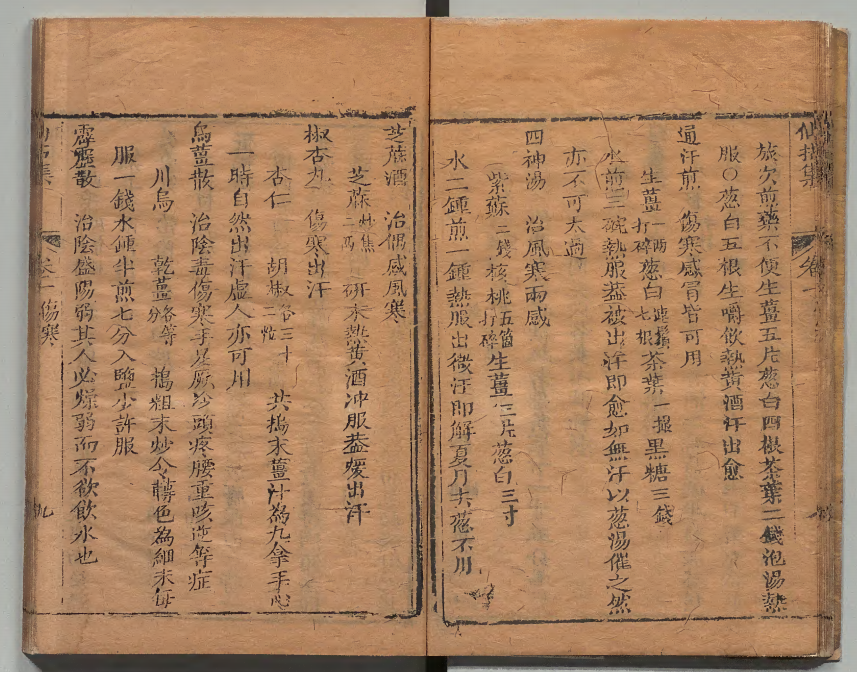 仙拈集 卷一
旅次煎藥不便生薑五片葱白四根茶葉二錢泡湯熱
服〇葱白五根生嚼飲熱黃酒汗出愈
通汗煎 傷寒感冒皆可用
生薑一兩打碎葱白連鬚七根茶葉一撮黑糖三錢
水煎三碗熱服葢被出汗即愈如無汗以葱湯催之然
亦不可太過
四神湯 治風寒兩感
紫蘇二錢核桃五個打碎生薑三片葱白三寸
水二鍾煎一鍾熱服出微汗即解夏月去葱不用
芝蔴酒 治偶感風寒
芝蔴炒焦二兩 研末熱黃酒冲服葢煖出汗
椒杏丸 傷寒出汗
杏仁 胡椒各三十二粒 共搗末薑汁為丸拿手心
一時自然出汗虛人亦可用
烏薑散 治陰毒傷寒手足厥冷頭疼腰重咳逆等症
川烏 乾薑各等分 搗粗末炒令轉色為細末每
服一錢水鍾半煎七分入鹽少許服
霹靂散 治陰盛陽弱其人必燥弱而不欲飲水也
仙拈集 卷一 傷寒 九